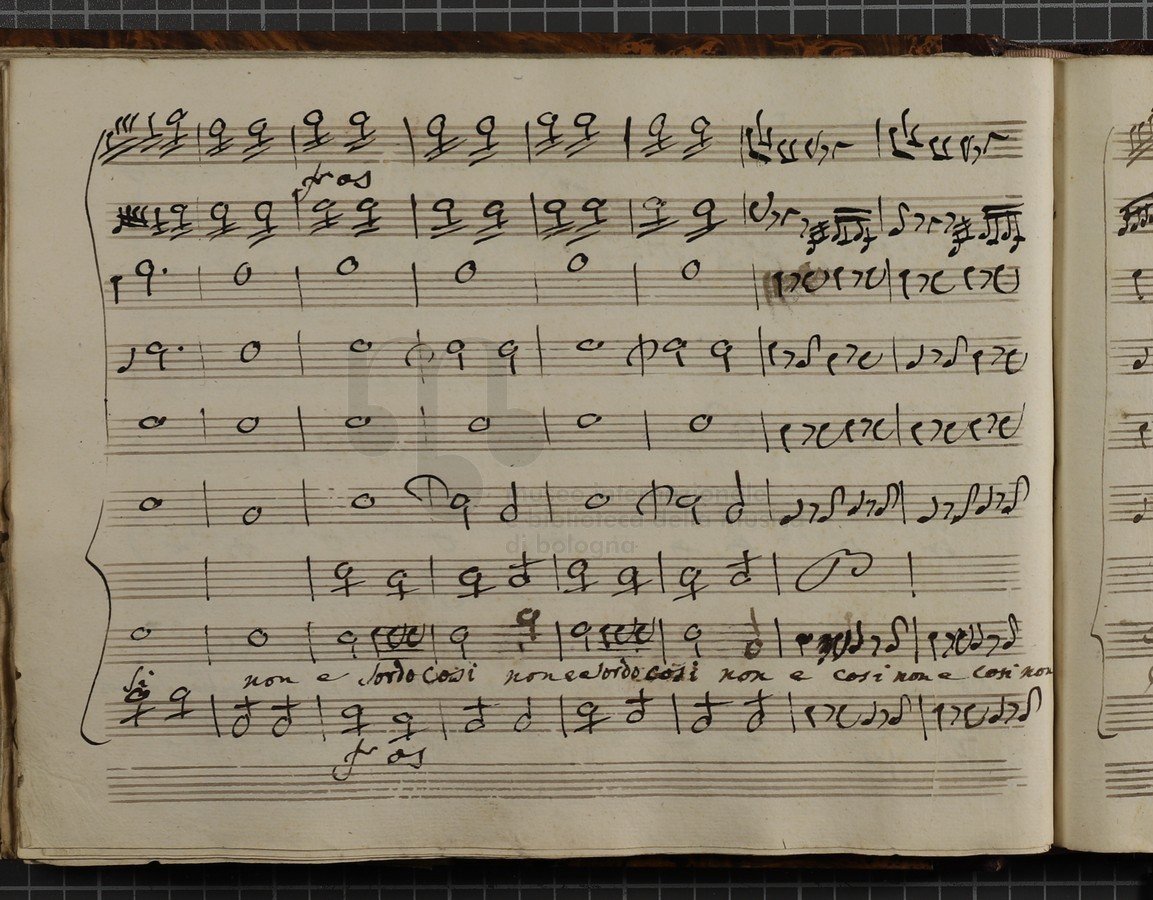 fr as
museo internazionale
e biblioteca della musica
di bologna
si non e sordo cosi non e e sordo cosi non e cosi non e cosi non
fr as